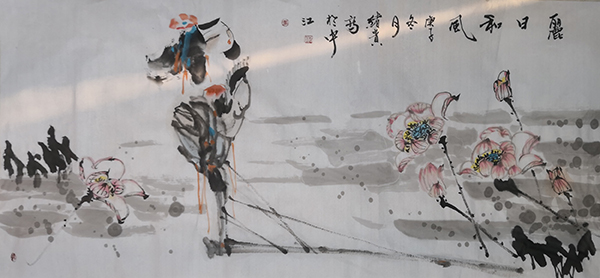 麗日和風
庚子
冬月
寫
於中
江